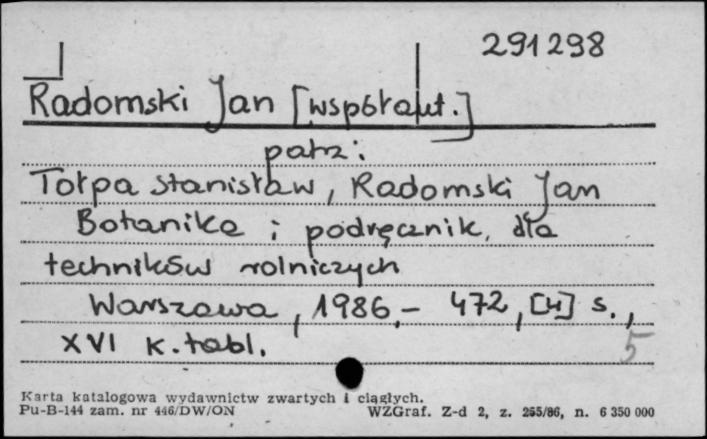 291298
Radomski Jan [współaut.]
patrz:
Tołpa Stanisław, Radomski Jan
Botanika : podręcznik dla
techników rolniczych
Warszawa, 1986.- 472, [4] s.,
XVI k. tabl.
5
Karta katalogowa wydawnictw zwartych i ciągłych.
Pu-B-144 zam. nr 446/DW/ON WZGraf. Z-d 2, z. 255/86, n. 6 350 000